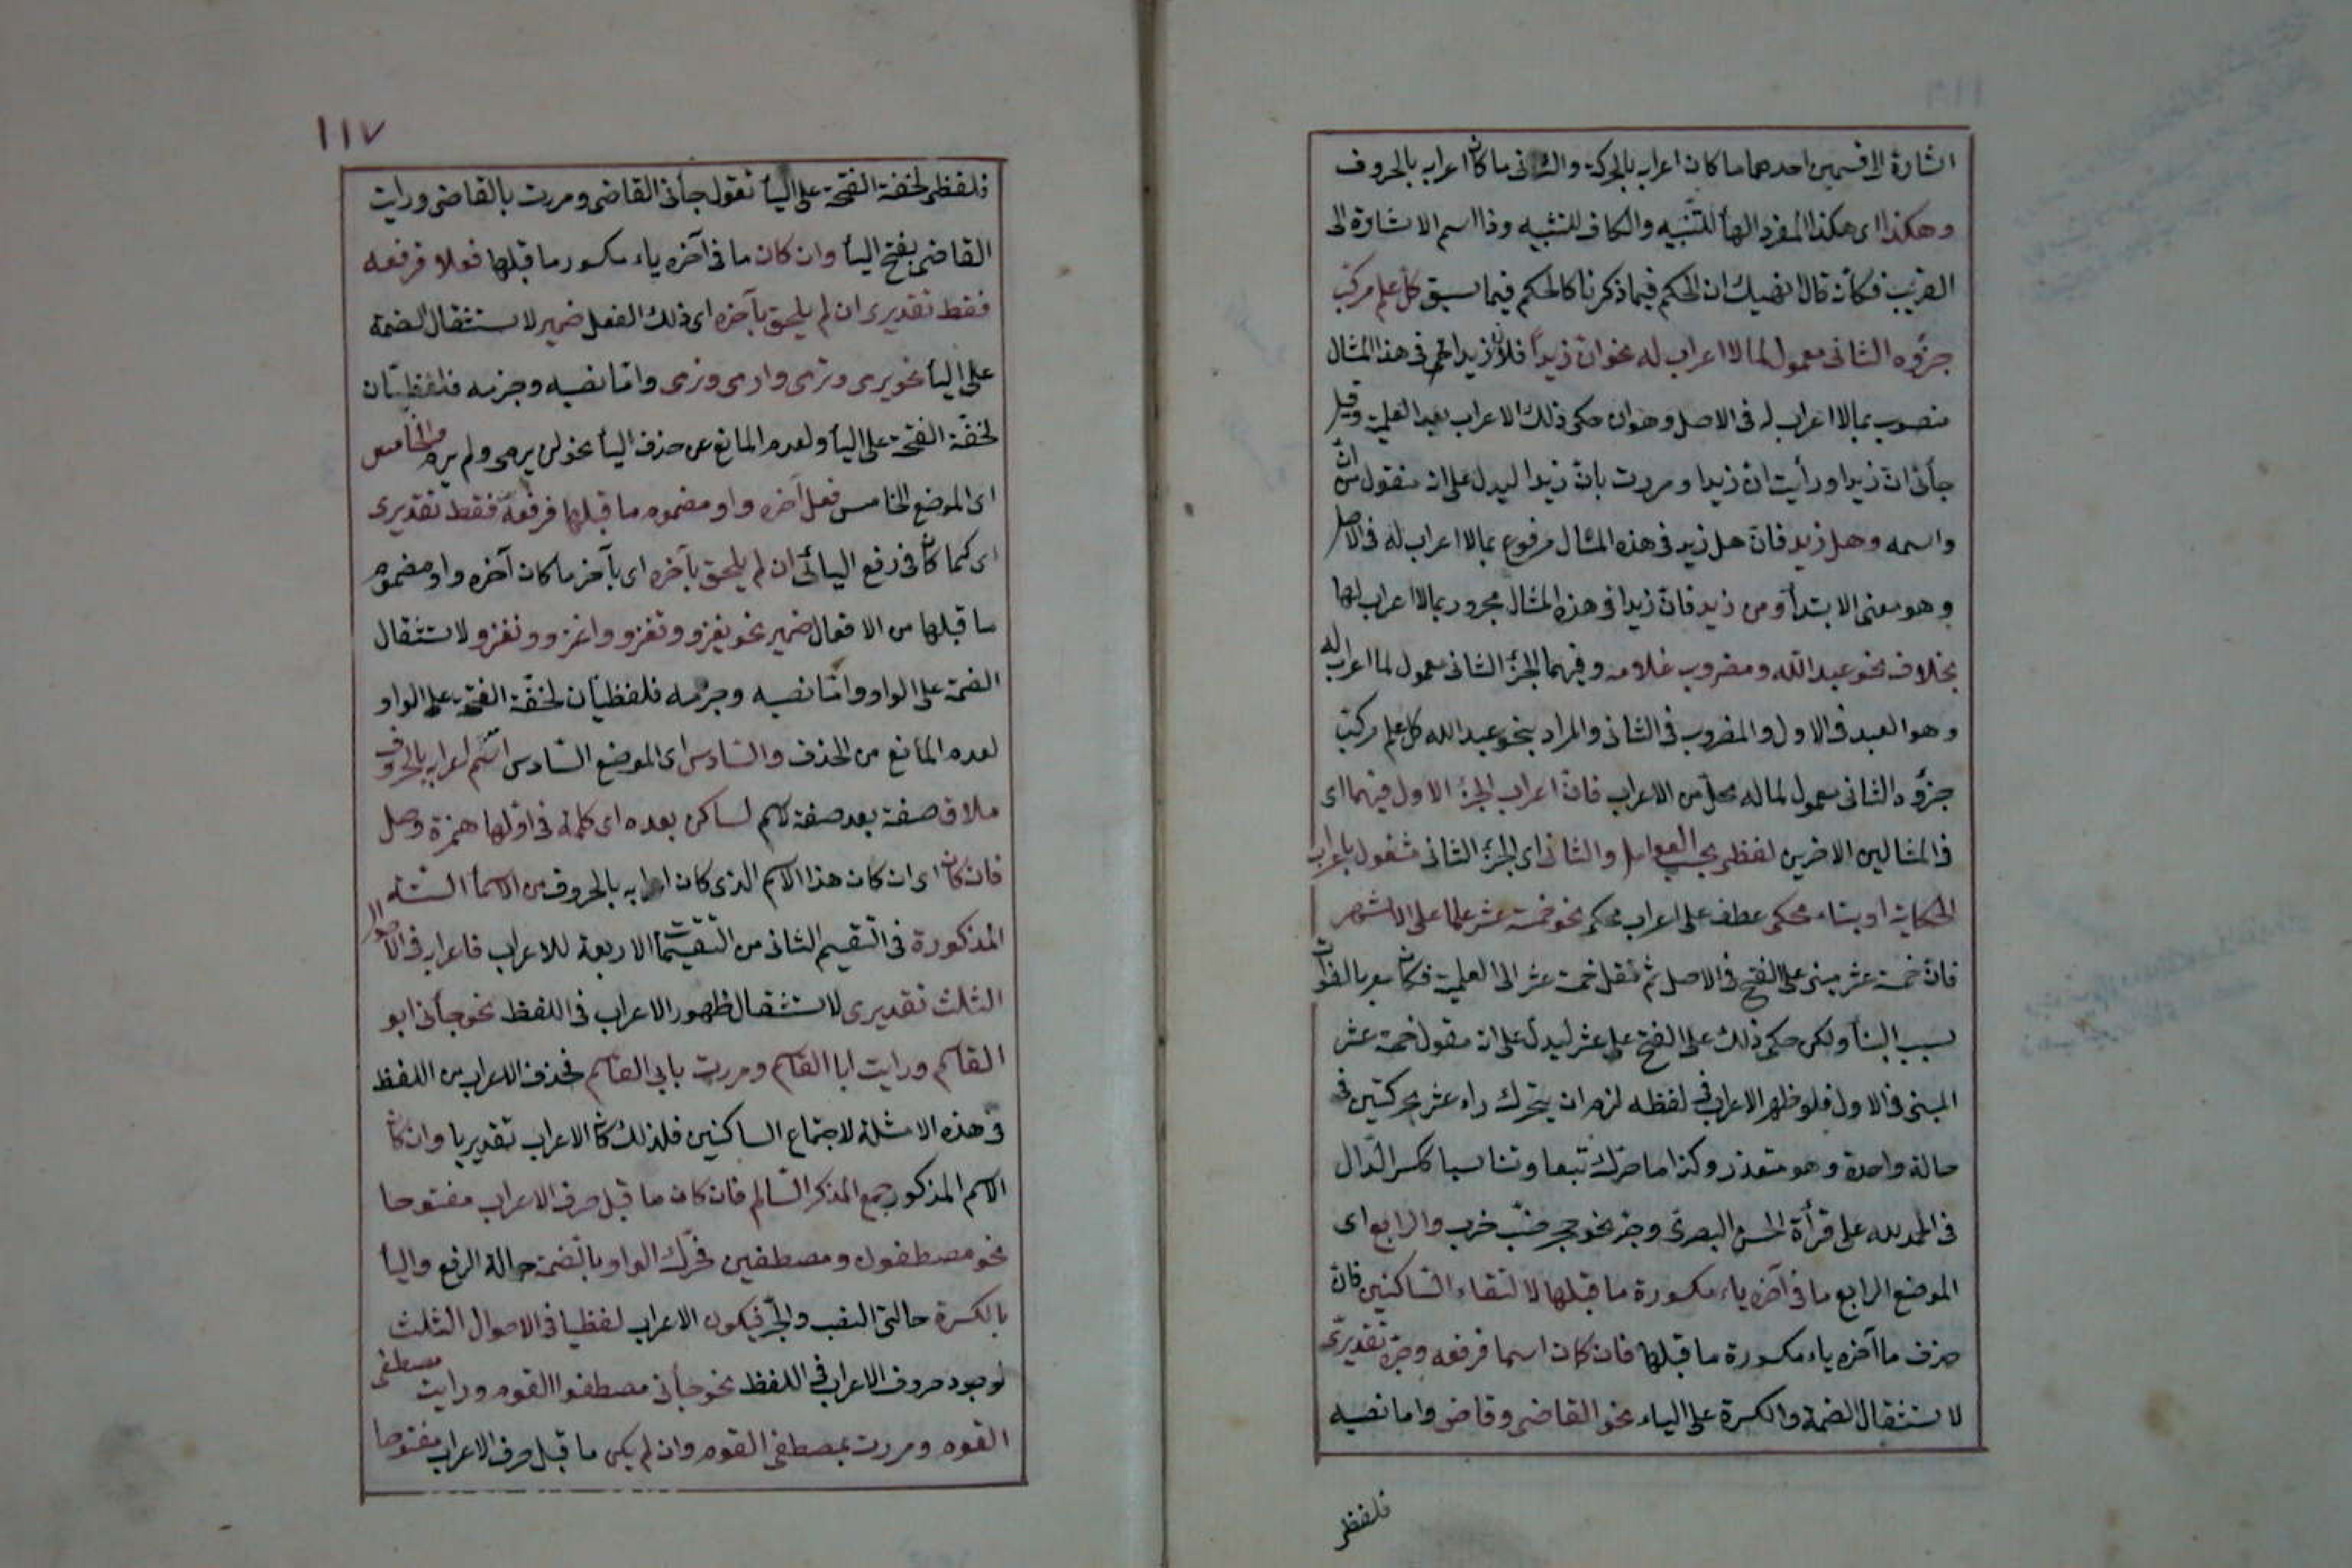 اشارة الى قسمين احدهما ما كان اعرابه بالحركة والثانى ما كان اعرابه بالحروف
وهكذا اى هكذا المفرد الهاء للتنبيه والكاف للتشبيه وذا اسم الاشارة الى
القريب فكأنه قال انهيك ان الحكم فيما ذكرنا كالحكم فيما سبق كل علم مركب
جزؤه الثانى معمول لما لا اعراب له نحو ان زيداً فلان زيدا فى هذا المثال
منصوب بما لا اعراب له فى الاصل وهو ان حكى ذلك الاعراب بعد العلمية وقيل
جأنى ان زيدا ورأيت ان زيدا ومررت بان زيدا ليدل على انه منقول من ان
واسمه وهل زيد فان هل زيد فى هذه المثال مرفوع بما لا اعراب له فى الاصل
وهو معنى الابتدأ ومن زيد فان زيدا فى هذه المثال مجرور بما لا اعراب لها
بخلاف نحو عبد الله ومضروب غلامه وفيهما الجزء الثانى معمول لما اعراب له
وهو العبد فى الاول والمضروب فى الثانى والمراد بنحو عبد الله كل علم مركب
جزؤه الثانى معمول لما له محل من الاعراب فان اعراب الجزء الاول فيهما اى
فى المثالين الاخرين لفظى بحسب العوامل والثانى اى الجزء الثانى مشغول باعراب
الحكاية او بناء محكى عطف على اعراب محكى نحو خمسة عشر علما على الاشهر
فان خمسة عشر مبنى على الفتح فى الاصل ثم نقل خمسة عشر الى العلمية فكان
بسبب البنأ ولكن حكى ذلك على الفتح على عشر ليدل على انه مقول خمسة عشر
المبنى فى الاول فلو ظهر الاعراب فى لفظه لزم ان يتحرك راء عشر بحركتين فى
حالة واحدة وهو متعذر وكذا ما حرك تبعا وتناسبا ككسر الدال
فى الحمد لله على قرأة الحسن البصرى وجر نحو جحر ضب خرب والرابع اى
الموضع الرابع ما فى آخره ياء مكسورة ما قبلها لالتقاء الساكنين فان
حزف ما آخره ياء مكسورة ما قبلها فان كان اسما فرفعه وجره تقديرى
لاستثقال الضمة والكسرة على الياء نحو القاضى وقاض واما نصبه
فلفظى
١١٧
فلفظى لخفة الفتحة على اليأ تقول جأنى القاضى ومررت بالقاضى ورايت
القاضى بفتح اليأ وان كان ما فى آخره ياء مكسور ما قبلها فعلا فرفعه
فقط تقديرى ان لم يلحق بآخره اى ذلك الفعل ضمير لاستثقال الضمة
على اليأ نحو يرمى وترمى وارمى ونرمى واما نصبه وجزمه فلفظيان
لخفة الفتحة على اليأ ولعدم المانع عن حذف اليأ نحو لن يرمى ولم يرم والخامس
اى الموضع الخامس فعل آخره واو مضموم ما قبلها فرفعه فقط تقديرى
اى كما كان فى رفع اليائى ان لم يلحق بآخره اى بآخر ما كان آخره واو مضموم
ما قبلها من الافعال ضمير نحو يغزو وتغزو واغزو ونغزو لاستثقال
الضمة على الواو واما نصبه وجزمه فلفظيان لخفة الفتحة على الواو
لعدم المانع من الحذف والسادس اى الموضع السادس اسم اعرابه بالحروف
ملاق صفة بعد صفة لاسم لساكن بعده اى كلمة فى اولها همزة وصل
فان كان اى ان كان هذا الاسم الذى كان اعرابه بالحروف من الاسمأ الستة
المذكورة فى التقسيم الثانى من التقسيمات الاربعة للاعراب فاعرابه فى الاحوال
الثلث تقديرى لاستثقال ظهور الاعراب فى اللفظ نحو جأنى ابو
القاسم ورايت ابا القاسم ومررت بابى القاسم فحذف الاعراب من اللفظ
فى هذه الامثلة لاجتماع الساكنين فلذلك كان الاعراب تقديريا وان كان
الاسم المذكور جمع المذكر السالم فان كان ما قبل حرف الاعراب مفتوحا
نحو مصطفون ومصطفين فحرك الواو بالضمة حالة الرفع واليأ
بالكسرة حالتى النصب والجر فيكون الاعراب لفظيا فى الاحوال الثلث
لوجود حروف الاعراب فى اللفظ نحو جأنى مصطفوا القوم ورايت مصطفى
القوم ومررت بمصطفى القوم وان لم يكن ما قبل حرف الاعراب مفتوحا